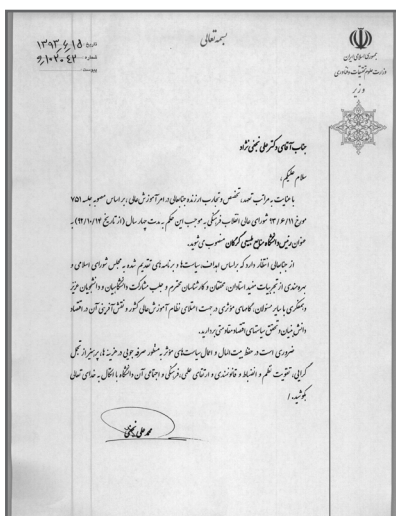 بسمه تعالی
جمهوری اسلامی ایران
وزارت علوم، تحقیقات و فناوری
وزیر
تاریخ ۱۳۹۳/۶/۱۵
شماره
پیوست
جناب آقای دکتر علی نجفی نژاد
سلام علیکم،
با عنایت به مراتب تعهد، تخصص و تجارب ارزنده جنابعالی در امر آموزش عالی، بر اساس مصوبه جلسه ۷۵۱
مورخ ۹۳/۶/۱۱ شورای عالی انقلاب فرهنگی به موجب این حکم به مدت چهار سال (از تاریخ ۹۲/۱۰/۱۴) به
عنوان رئیس دانشگاه منابع طبیعی گرگان منصوب می شوید.
از جنابعالی انتظار دارد که براساس اهداف، سیاست ها و برنامه های تقدیم شده به مجلس شورای اسلامی و
بهره مندی از تجربیات مفید استادان، محققان و کارشناسان محترم و جلب مشارکت دانشگاهیان و دانشجویان عزیز
و همفکری با سایر مسئولان، گامهای مؤثری در جهت اعتلای نظام آموزش عالی کشور و نقش آفرینی آن در اقتصاد
دانش بنیان و تحقق سیاستهای اقتصاد مقاومتی بردارید.
ضروری است در حفظ بیت المال و اعمال سیاست های مؤثر به منظور صرفه جویی در هزینه ها، پرهیز از تجمل
گرایی، تقویت نظم و انضباط و قانونمندی و ارتقای علمی، فرهنگی و اجتماعی آن دانشگاه با اتکال به خدای تعالی
بکوشید. /
محمد علی نجفی